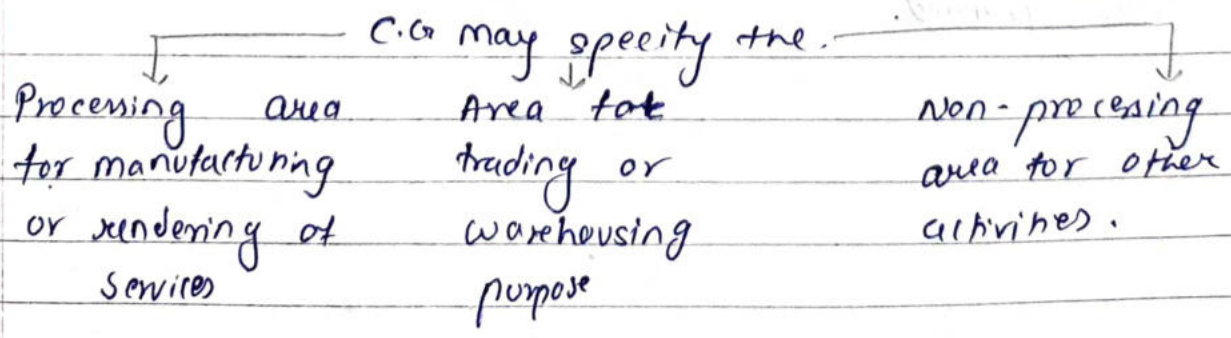 C.G may specify the.
Processing area
for manufacturing
or rendering of
services
Area for
trading or
warehousing
purpose
Non-processing
area for other
activities.